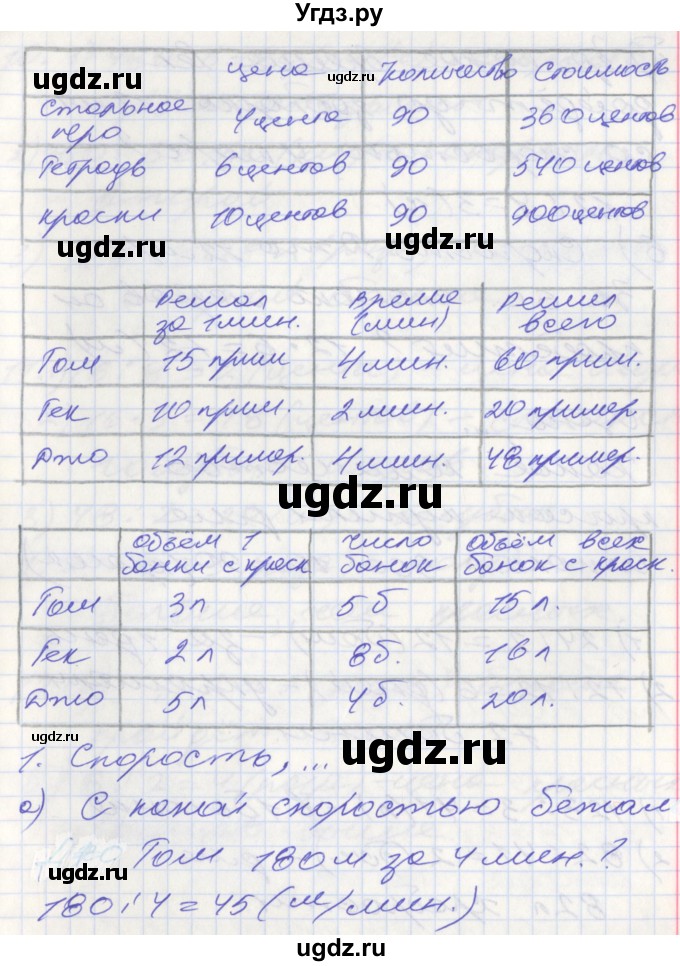 Угдз.ру
ugdz.ru
цена ugdz.ru Количество Стоимость
Стальное
перо 4 цента 90 360 центов
Тетрадь 6 центов 90 540 центов
краски 10 центов 90 900 центов
ugdz.ru ugdz.ru
Решал
за 1 мин. Время
(мин) Решил
всего
Том 15 прим 4 мин. 60 прим.
Гек 10 прим. 2 мин. 20 пример
Джо 12 пример. 4 мин. 48 пример.
ugdz.ru
Объём 1
банки с краск Число
банок Объём всех
банок с краск.
Том 3 л 5 б 15 л.
Гек 2 л 8 б. 16 л
Джо 5 л 4 б. 20 л.
ugdz.ru ugdz.ru
1. Спорость, ...
а) С какой скоростью бежал
Том 180 м за 4 мин.?
ugdz.ru
180:4=45 (м/мин.)
ugdz.ru